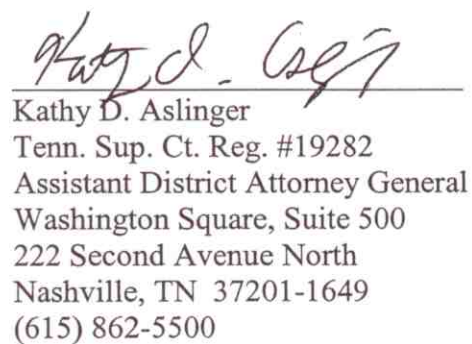 Kathy D. Aslinger
Kathy D. Aslinger
Tenn. Sup. Ct. Reg. #19282
Assistant District Attorney General
Washington Square, Suite 500
222 Second Avenue North
Nashville, TN 37201-1649
(615) 862-5500